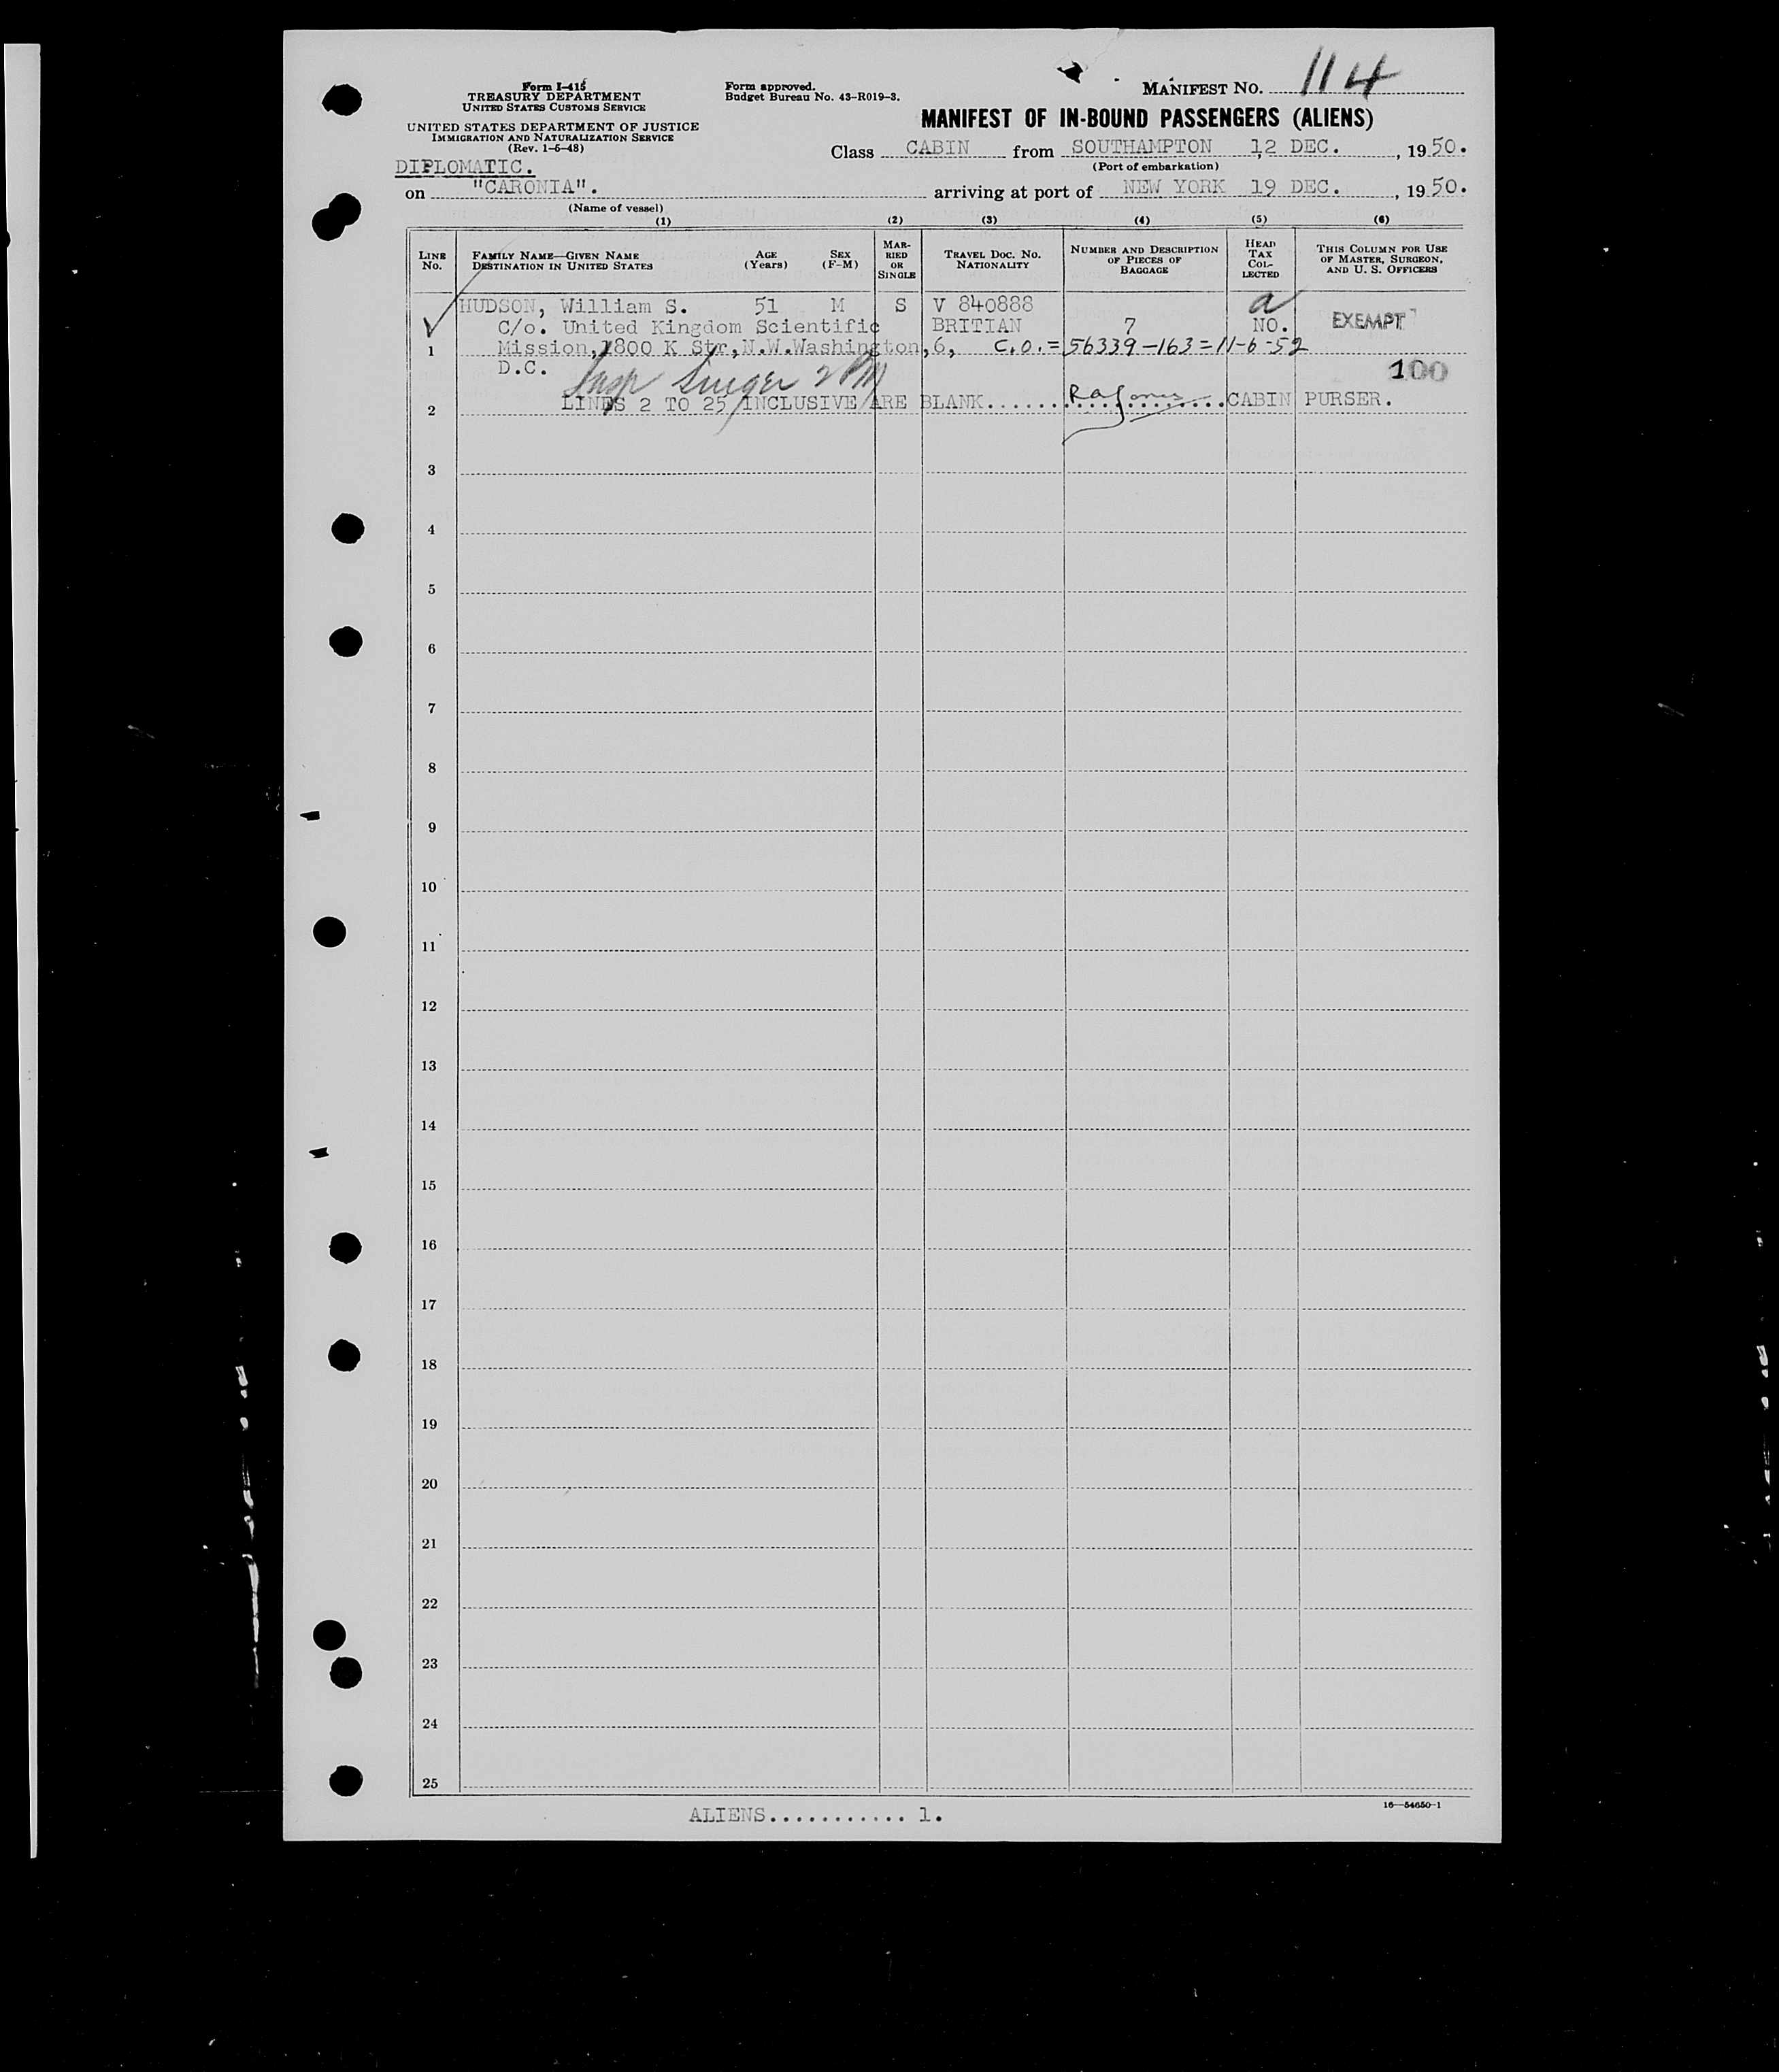 Form I-415
TREASURY DEPARTMENT
UNITED STATES CUSTOMS SERVICE
UNITED STATES DEPARTMENT OF JUSTICE
IMMIGRATION AND NATURALIZATION SERVICE
(Rev. 1-6-48)
Form approved.
Budget Bureau No. 43-R019-3.
MANIFEST NO. 114
MANIFEST OF IN-BOUND PASSENGERS (ALIENS)
Class CABIN from SOUTHAMPTON 12 DEC. , 1950.
(Port of embarkation)
DIPLOMATIC.
on "CARONIA". arriving at port of NEW YORK 19 DEC. , 1950.
(Name of vessel)
(1) (2) (3) (4) (5) (6)
LINE No.
FAMILY NAME—GIVEN NAME AGE (Years) SEX (F-M)
DESTINATION IN UNITED STATES
MARRIED OR SINGLE
TRAVEL DOC. NO. NATIONALITY
NUMBER AND DESCRIPTION OF PIECES OF BAGGAGE
HEAD TAX COLLECTED
THIS COLUMN FOR USE OF MASTER, SURGEON, AND U. S. OFFICERS
HUDSON, William S. 51 M S V 840888 a
C/o. United Kingdom Scientific BRITIAN 7 NO. EXEMPT
1 Mission,1800 K Str,N.W.Washington,6, C.O.= 56339-163=11-6-52
D.C. 100
Insp Singer 2 PM
2 LINES 2 TO 25 INCLUSIVE ARE BLANK...................CABIN PURSER.
3
4
5
6
7
8
9
10
11
12
13
14
15
16
17
18
19
20
21
22
23
24
25
ALIENS........... 1.
16—54650-1